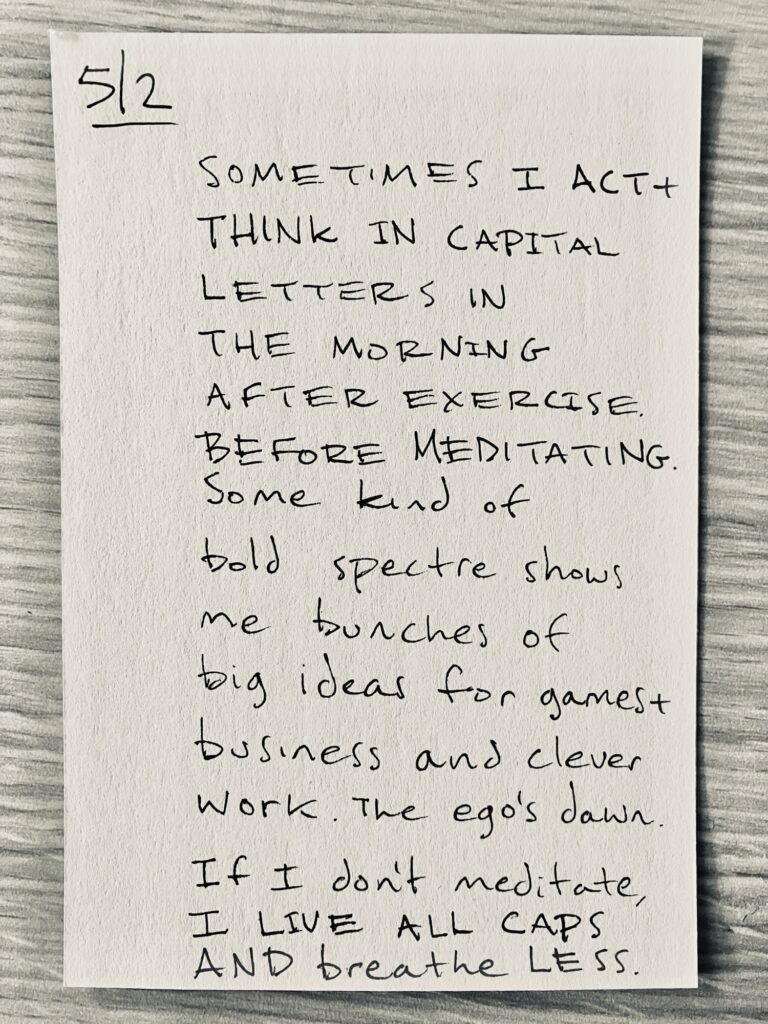 5/2
SOMETIMES I ACT+
THINK IN CAPITAL
LETTERS IN
THE MORNING
AFTER EXERCISE.
BEFORE MEDITATING.
Some kind of
bold spectre shows
me bunches of
big ideas for games+
business and clever
work. The ego's dawn.
If I don't meditate,
I LIVE ALL CAPS
AND breathe LESS.